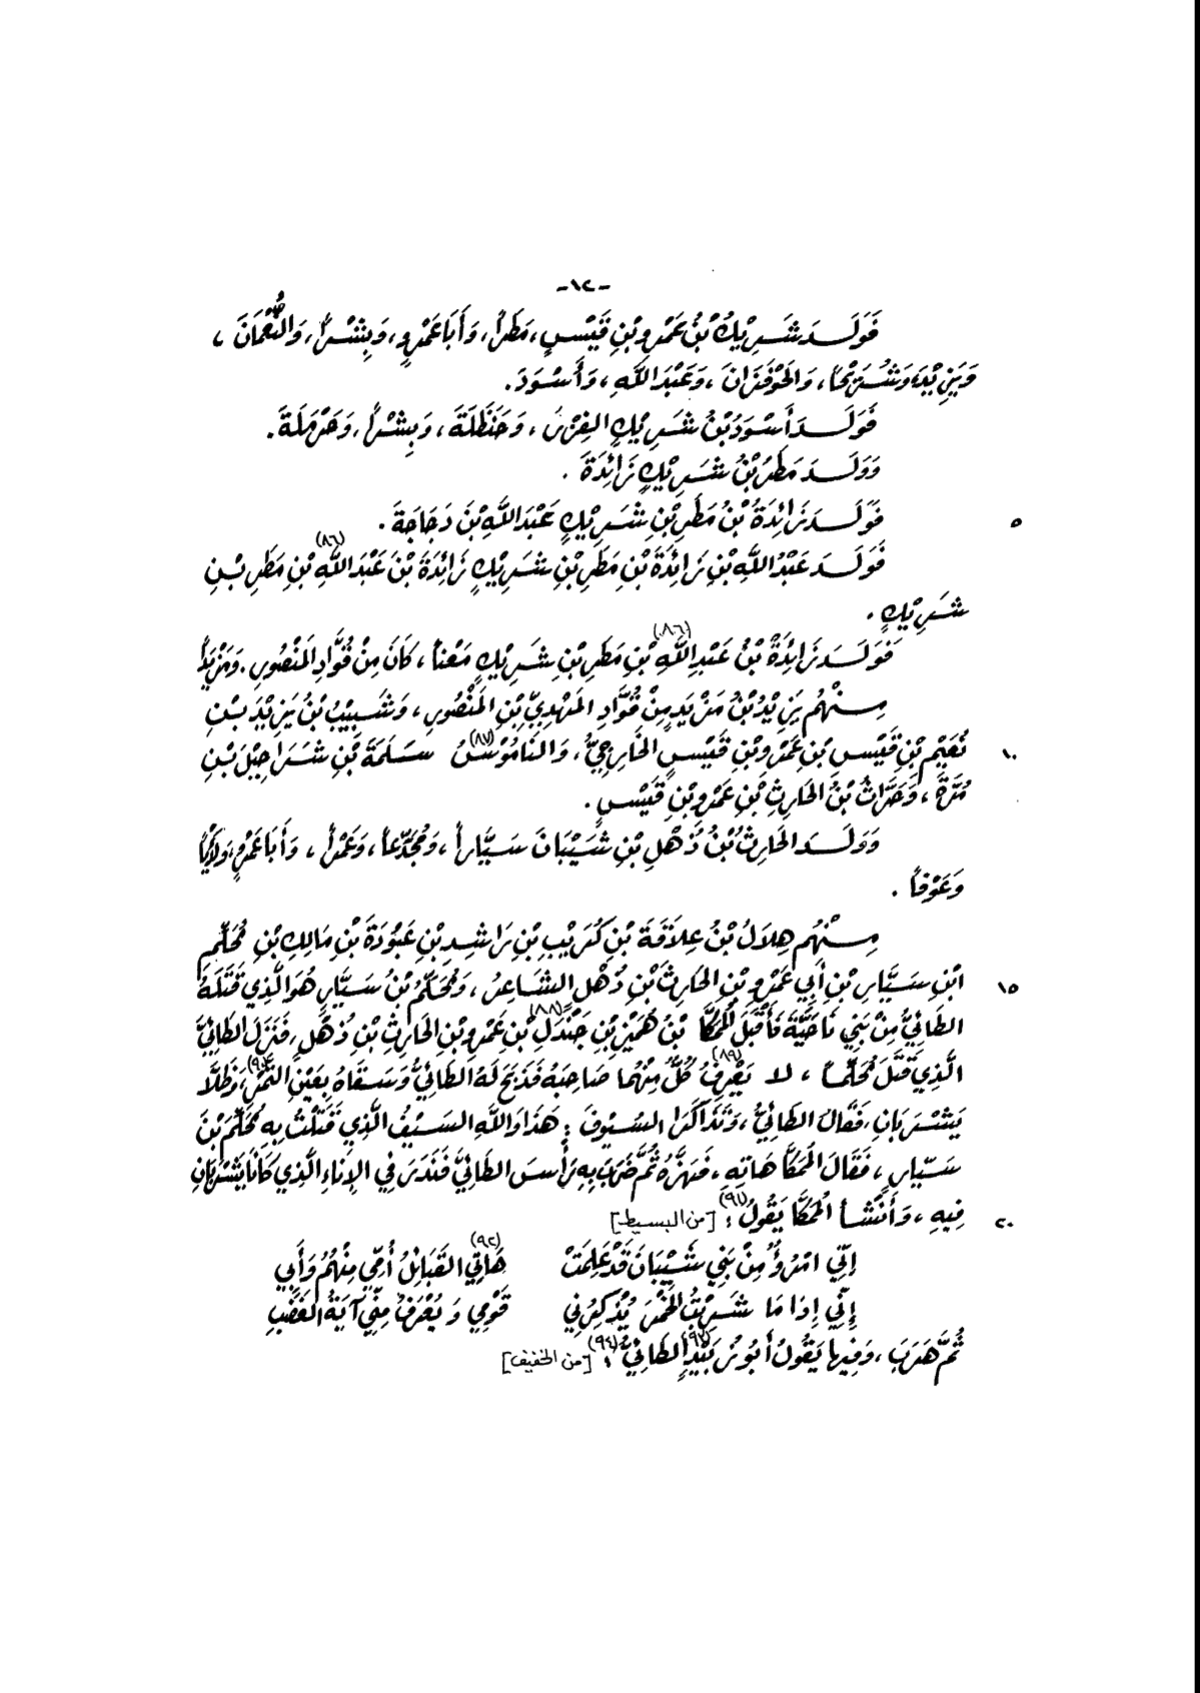 -١٢-
فَوَلَدَ شَرِيْكُ بْنُ عَمْرِو بْنِ قَيْسٍ، مَطَراً، وَأَبَا عَمْرٍو، وَبِشْراً، وَالنُّعْمَانَ،
وَيَزِيْدَ، وَشُرَيْحاً، وَالحَوْفَزَانَ، وَعَبْدَ اللَّهِ، وَأَسْوَدَ.
فَوَلَدَ أَسْوَدُ بْنُ شَرِيْكٍ الفِزْرَ، وَحَنْظَلَةَ، وَبِشْراً، وَحَرْمَلَةَ.
وَوَلَدَ مَطَرُ بْنُ شَرِيْكٍ زَائِدَةَ.
٥ فَوَلَدَ زَائِدَةُ بْنُ مَطَرِ بْنِ شَرِيْكٍ عَبْدَ اللَّهِ بْنَ دَجَاجَةَ.
فَوَلَدَ عَبْدُ اللَّهِ بْنِ زَائِدَةَ بْنِ مَطَرِ بْنِ شَرِيْكٍ زَائِدَةَ بْنَ عَبْدِ اللَّهِ (٨٦) بْنِ مَطَرِ بْنِ
شَرِيْكٍ.
فَوَلَدَ زَائِدَةُ بْنُ عَبْدِ اللَّهِ (٨٦) بْنِ مَطَرِ بْنِ شَرِيْكٍ مَعْناً، كَانَ مِنْ قُوَّادِ المَنْصُورِ. وَمَزْيَداً
مِنْهُم يَزِيْدُ بْنُ مَزْيَدٍ مِنْ قُوَّادِ المَهْدِيِّ بْنِ المَنْصُورِ، وَشَبِيْبُ بْنُ يَزِيْدَ بْنِ
١٠ نُعَيْمِ بْنِ قَيْسِ بْنِ عَمْرِو بْنِ قَيْسٍ الخَارِجِيُّ، وَالنَّامُوْسُ (٨٧) سَلَمَةَ بْنِ شَرَاحِيْلَ بْنِ
مُرَّةَ، وَحَرَّاثُ بْنُ الحَارِثِ بْنِ عَمْرِو بْنِ قَيْسٍ.
وَوَلَدَ الحَارِثُ بْنُ ذُهْلِ بْنِ شَيْبَانَ سَيَّاراً، وَمُجَدَّعاً، وَعَمْراً، وَأَبَا عَمْرٍو، وَلَأْياً
وَعَوْفاً.
مِنْهُم هِلَالُ بْنُ عِلَاقَةَ بْنِ كُرَيْبِ بْنِ رَاشِدِ بْنِ عَبُوْدَةَ بْنِ مَالِكِ بْنِ مُحَلِّمِ
١٥ ابْنِ سَيَّارِ بْنِ أَبِي عَمْرِو بْنِ الحَارِثِ بْنِ ذُهْلٍ الشَّاعِرُ، وَمُحَلِّمُ بْنُ سَيَّارٍ هُوَ الَّذِي قَتَلَهُ
الطَّائِيُّ مِنْ بَنِي نَاحِيَّةَ فَأَقْبَلَ المُكَّا بْنُ هُمَيْزِ بْنِ جَنْدَلِ (٨٨) بْنِ عَمْرِو بْنِ الحَارِثِ بْنِ ذُهْلٍ، فَنَزَلَ الطَّائِيُّ
الَّذِي قَتَلَ مُحَلِّماً، لا يَعْرِفُ (٨٩) كُلٌّ مِنْهُمَا صَاحِبَهُ فَذَبَحَ لَهُ الطَّائِيُّ وَسَقَاهُ بِعَيْنِ التَّمْرِ (٩٠)، وَظَلَّا
يَشْرَبَانِ، فَقَالَ الطَّائِيُّ، وَتَذَاكَرَا السُّيُوفَ: هَذَا وَاللَّهِ السَّيْفُ الَّذِي قَتَلْتُ بِهِ مُحَلِّمَ بْنَ
سَيَّارٍ، فَقَالَ المُكَّا هَاتِهِ، فَهَزَّهُ ثُمَّ ضَرَبَ بِهِ رَأْسَ الطَّائِيِّ فَنَدَرَ فِي الإِنَاءِ الَّذِي كَانَا يَشْرَبَانِ
٢٠ فِيهِ، وَأَنْشَأَ المُكَّا يَقُولُ (٩١): [من البسيط]
إِنِّي امْرُؤٌ مِنْ بَنِي شَيْبَانَ قَدْ عَلِمَتْ هَاتِي (٩٢) القَبَائِلُ أُمِّي مِنْهُمُ وَأَبِي
إِنِّي إِذَا مَا شَرِبْتُ الخَمْرَ يُذْكِرُنِي قَوْمِي وَيُعْرَفُ مِنِّي آيَةُ الغَضَبِ
ثُمَّ هَرَبَ، وَفِيهَا يَقُولُ أَبُو زُبَيْدٍ (٩٣) الطَّائِيُّ (٩٤): [من الخفيف]